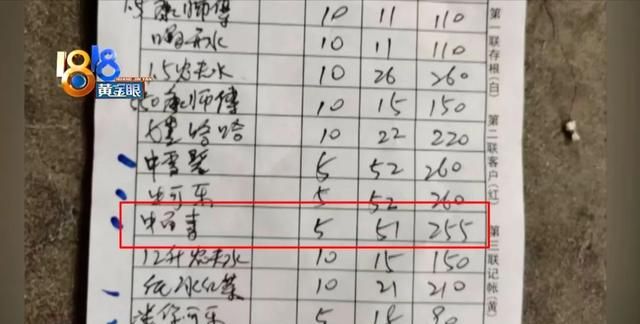 1818
黄金眼
1.5康师傅 10 11 110
水 10 11 110
1.5农夫水 10 26 260
550康师傅 10 15 150
哈哈 10 22 220
中雪碧 5 52 260
中可乐 5 52 260
中百事 5 51 255
12升农夫水 10 15 150
冰红茶 10 21 210
迷你可乐 5 18 90
第一联存根(白) 第二联客户(红) 第三联记帐(黄)